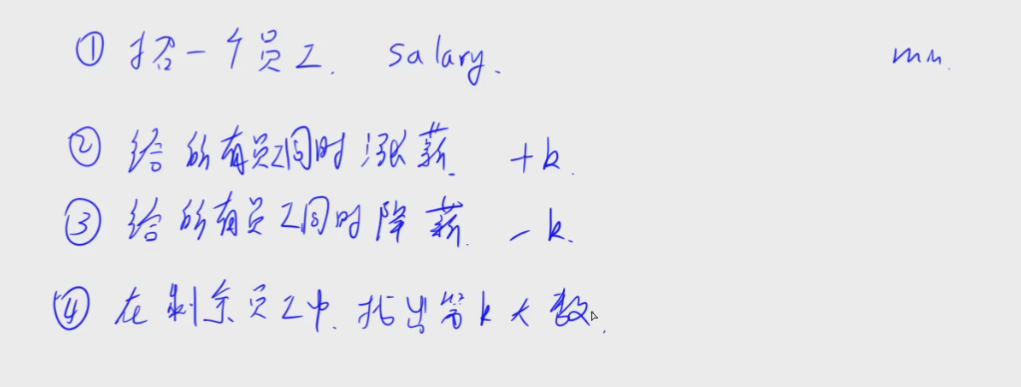 ① 招一个员工. salary. mn.
② 给所有员工同时涨薪. +k.
③ 给所有员工同时降薪. -k.
④ 在剩余员工中. 找出第k大数.